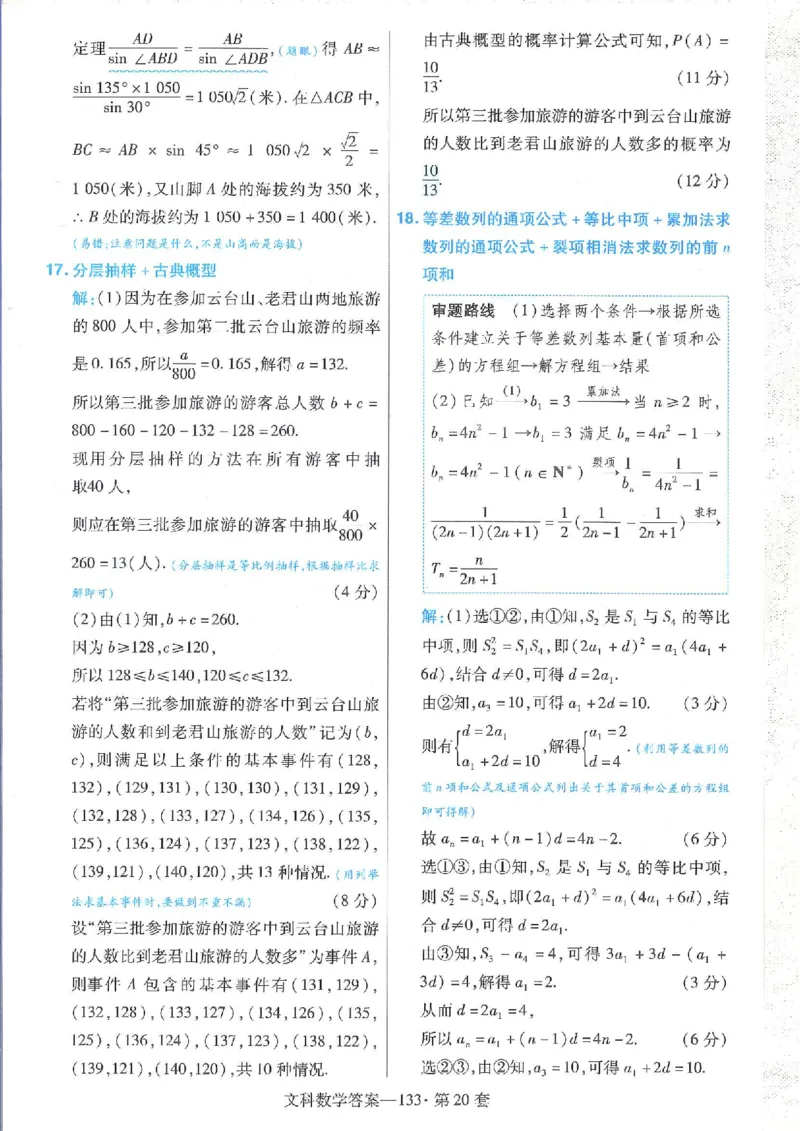 定理 AD/sin ∠ABD = AB/sin ∠ADB,(题眼)得 AB≈
sin 135°×1 050/sin 30° =1 050√2(米).在△ACB中,
BC ≈ AB × sin 45° ≈ 1 050√2 × √2/2 =
1 050(米),又山脚 A 处的海拔约为 350 米,
∴B处的海拔约为1 050+350=1 400(米).
(易错:注意问题是什么,不是山高而是海拔)
17.分层抽样+古典概型
解:(1)因为在参加云台山、老君山两地旅游
的800人中,参加第二批云台山旅游的频率
是0.165,所以a/800=0.165,解得a=132.
所以第三批参加旅游的游客总人数 b+c=
800-160-120-132-128=260.
现用分层抽样的方法在所有游客中抽
取40人,
则应在第三批参加旅游的游客中抽取40/800×
260=13(人).(分层抽样是等比例抽样,根据抽样比求
解即可) (4分)
(2)由(1)知,b+c=260.
因为b≥128,c≥120,
所以128≤b≤140,120≤c≤132.
若将“第三批参加旅游的游客中到云台山旅
游的人数和到老君山旅游的人数”记为(b,
c),则满足以上条件的基本事件有(128,
132),(129,131),(130,130),(131,129),
(132,128),(133,127),(134,126),(135,
125),(136,124),(137,123),(138,122),
(139,121),(140,120),共13种情况.(用列举
法求基本事件时,要做到不重不漏) (8分)
设“第三批参加旅游的游客中到云台山旅游
的人数比到老君山旅游的人数多”为事件A,
则事件 A 包含的基本事件有(131,129),
(132,128),(133,127),(134,126),(135,
125),(136,124),(137,123),(138,122),
(139,121),(140,120),共10种情况.
由古典概型的概率计算公式可知,P(A)=
10/13. (11分)
所以第三批参加旅游的游客中到云台山旅游
的人数比到老君山旅游的人数多的概率为
10/13. (12分)
18.等差数列的通项公式+等比中项+累加法求
数列的通项公式+裂项相消法求数列的前n
项和
审题路线 (1)选择两个条件→根据所选
条件建立关于等差数列基本量(首项和公
差)的方程组→解方程组→结果
(2)已知 (1)→ b₁=3 累加法→ 当 n≥2 时,
bₙ=4n²-1→b₁=3 满足 bₙ=4n²-1→
bₙ=4n²-1(n∈N*) 裂项→ 1/bₙ = 1/(4n²-1) =
1/((2n-1)(2n+1)) = 1/2(1/(2n-1) - 1/(2n+1)) 求和→
Tₙ=n/(2n+1)
解:(1)选①②,由①知,S₂是S₁与S₄的等比
中项,则S₂²=S₁S₄,即(2a₁+d)²=a₁(4a₁+
6d),结合d≠0,可得d=2a₁.
由②知,a₃=10,可得a₁+2d=10. (3分)
则有{d=2a₁, a₁+2d=10,解得{a₁=2, d=4.(利用等差数列的
前n项和公式及通项公式列出关于其首项和公差的方程组
即可得解)
故aₙ=a₁+(n-1)d=4n-2. (6分)
选①③,由①知,S₂是S₁与S₄的等比中项,
则S₂²=S₁S₄,即(2a₁+d)²=a₁(4a₁+6d),结
合d≠0,可得d=2a₁.
由③知,S₃-a₄=4,可得3a₁+3d-(a₁+
3d)=4,解得a₁=2. (3分)
从而d=2a₁=4,
所以aₙ=a₁+(n-1)d=4n-2. (6分)
选②③,由②知,a₃=10,可得a₁+2d=10.
文科数学答案—133·第20套